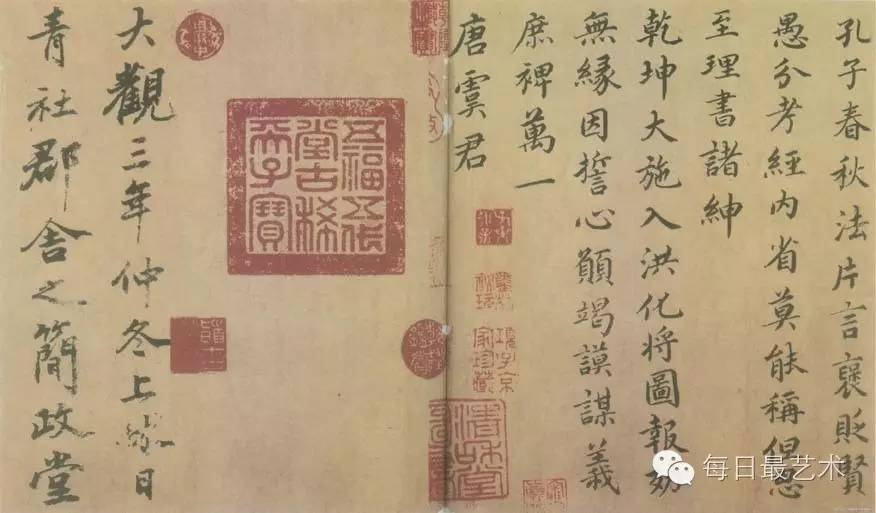 孔子春秋法片言襃貶賢
愚分考經內省莫能稱俱思
至理書諸紳
乾坤大施入洪化將圖報効
無緣因誓心願竭謨謀義
庶裨萬一
唐虞君
五福五代
堂古稀
天子寶
大觀三年仲冬上澣日
青社郡舍之簡政堂
項子京
家珍藏
每日最艺术